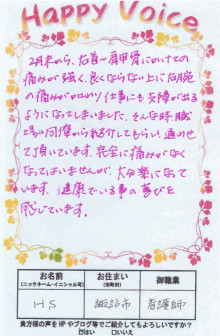 Happy Voice
2月末から、右首〜肩甲骨にかけての
痛みが強く、良くならない上に右腕
の痛みが加わり仕事にも支障が出る
ようになってしまいました。そんな時、職
場の同僚から紹介してもらい、通わせ
て頂いています。完全に痛みがなく
なってはいませんが、大分楽になって
います。健康でいる事の喜びを
感じています。
お名前
(ニックネーム・イニシャル可)
お住まい
(市町村)
御職業
H S
諏訪市
看護師
貴方様の声をHPやブログ等でご紹介してもよろしいですか?
☑はい □いいえ